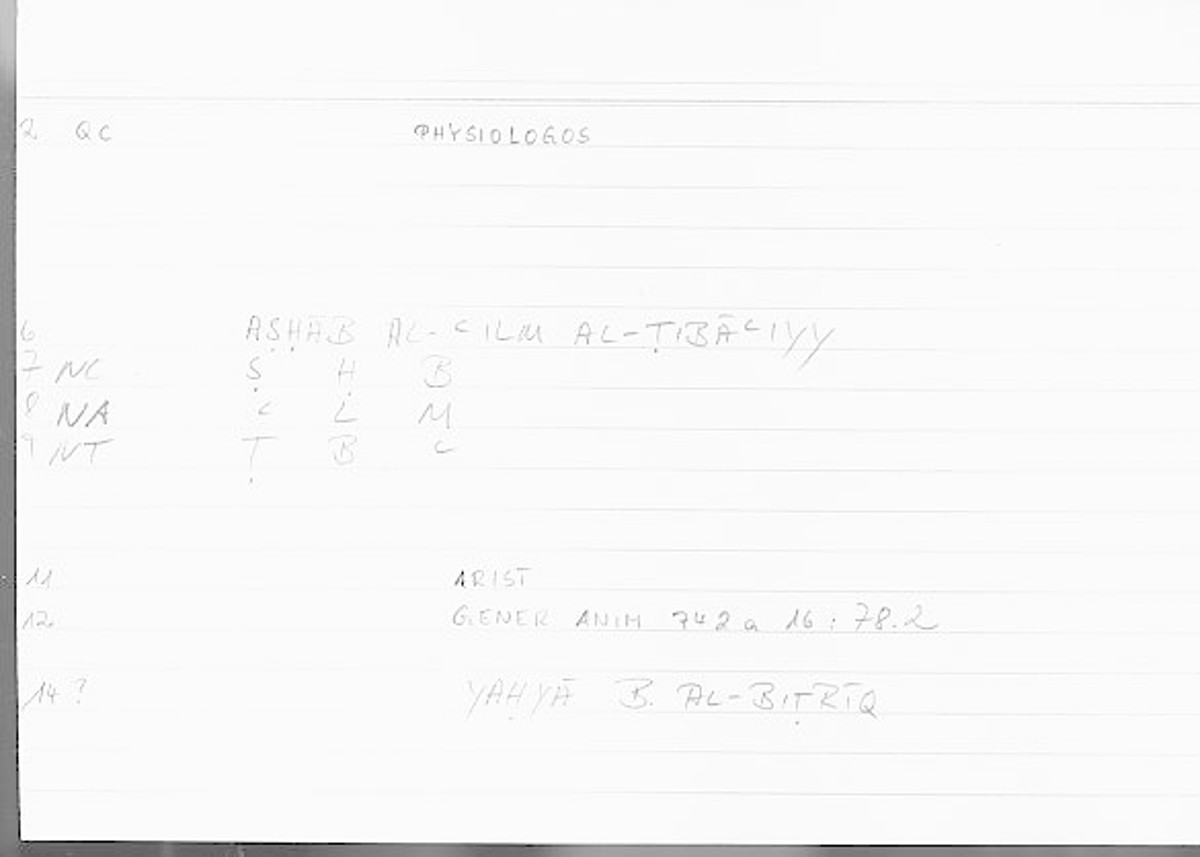 2 QC PHYSIOLOGOS
6 AṢḤĀB AL-ᶜILM AL-ṬIBĀᶜIYY
7 NC Ṣ Ḥ B
8 NA ᶜ L M
9 NT Ṭ B ᶜ
11 ARIST
12 GENER ANIM 742a 16 : 78.2
14 ? YAḤYĀ B. AL-BIṬRĪQ